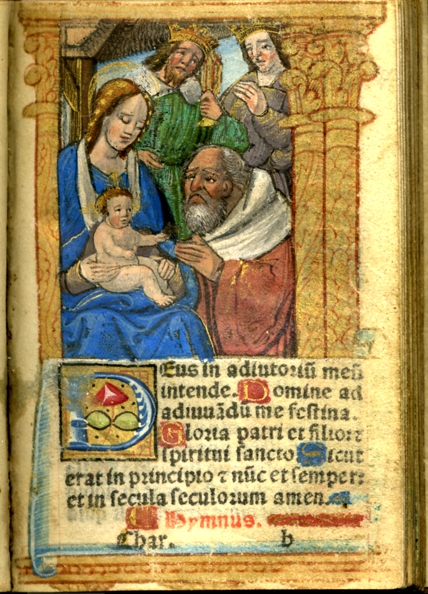 Deus in adiutoriū meū
intende. Domine ad
adiuuādū me festina.
Gloria patri et filio: ⁊
spiritui sancto Sicut
erat in principio ⁊ nūc et semper:
et in secula seculorum amen.
Hymnus.
Char. b